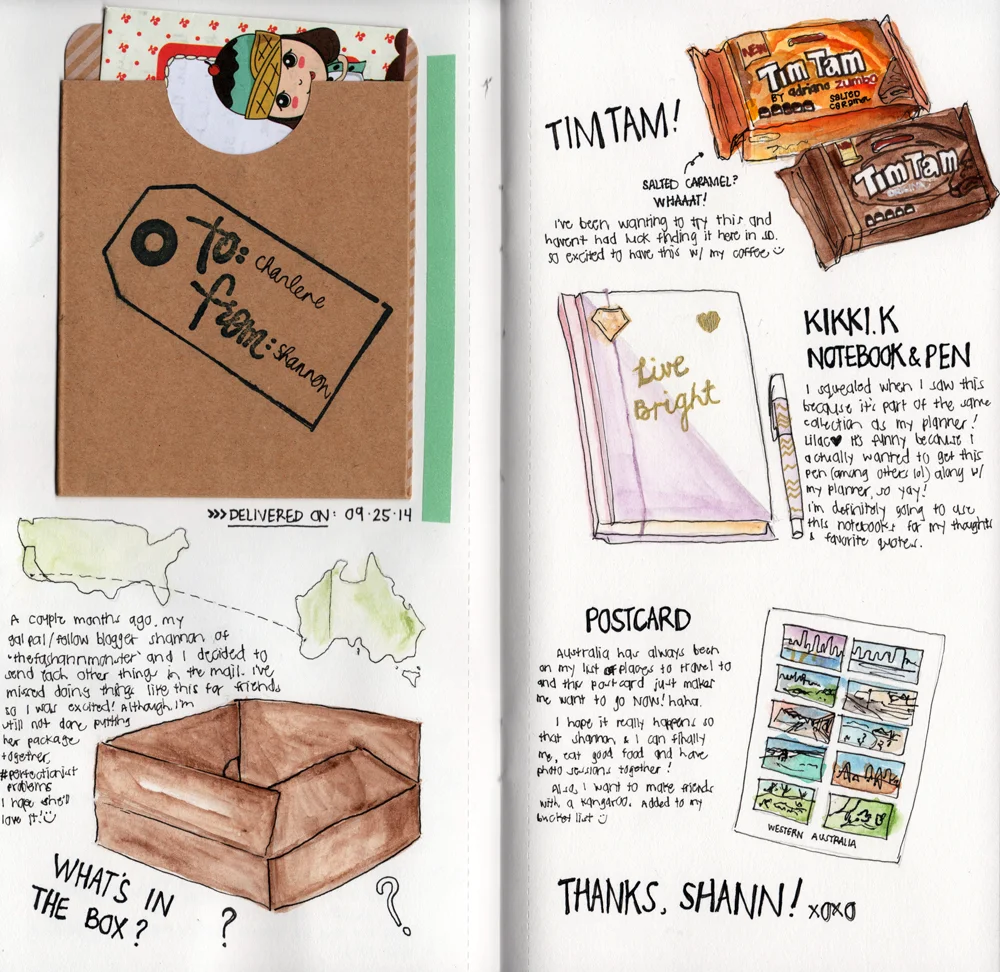 TO: charlene
from: shannon
>>> DELIVERED ON: 09.25.14
A couple months ago, my
gal pal/fellow blogger shannon of
"thefashannmonster" and I decided to
send each other things in the mail. I've
missed doing things like this for friends
so I was excited! Although, I'm
still not done putting
her package
together.
#perfectionist
problems
I hope she'll
love it!
WHAT'S IN
THE BOX?
?
?
TIM TAM!
NEW
Tim Tam
BY adriano zumbo
SALTED
CARAMEL
Tim Tam
SALTED CARAMEL?
WHAAAT!
I've been wanting to try this and
havent had luck finding it here in SD.
so excited to have this w/ my coffee
Live
Bright
KIKKI.K
NOTEBOOK & PEN
I squealed when I saw this
because it's part of the same
collection as my planner!
Lilac♥ It's funny because I
actually wanted to get this
pen (among others lol) along w/
my planner, so yay!
I'm definitely going to use
this notebooks for my thoughts
& favorite quotes.
POSTCARD
Australia has always been
on my list of places to travel to
and this postcard just makes
me want to go NOW! haha.
I hope it really happens so
that shannon & I can finally
me, eat good food and have
photo sessions together!
Also, I want to make friends
with a kangaroo. Added to my
bucket list
WESTERN AUSTRALIA
THANKS, SHANN! xoxo